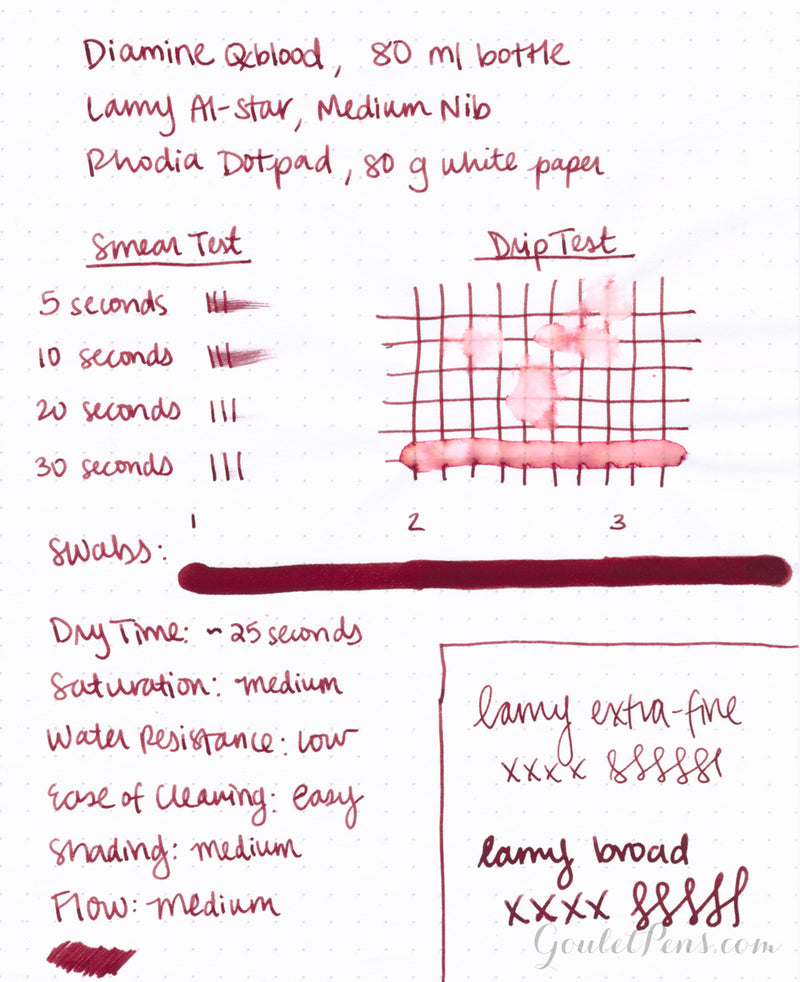 Diamine Oxblood, 80 ml bottle
Lamy Al-Star, Medium Nib
Rhodia Dotpad, 80 g white paper
Smear Test
5 seconds
10 seconds
20 seconds
30 seconds
Drip Test
Swabs:
1 2 3
Dry Time: ~25 seconds
Saturation: medium
Water Resistance: low
Ease of Cleaning: easy
Shading: medium
Flow: medium
lamy extra-fine
xxxx
lamy broad
xxxx
GouletPens.com